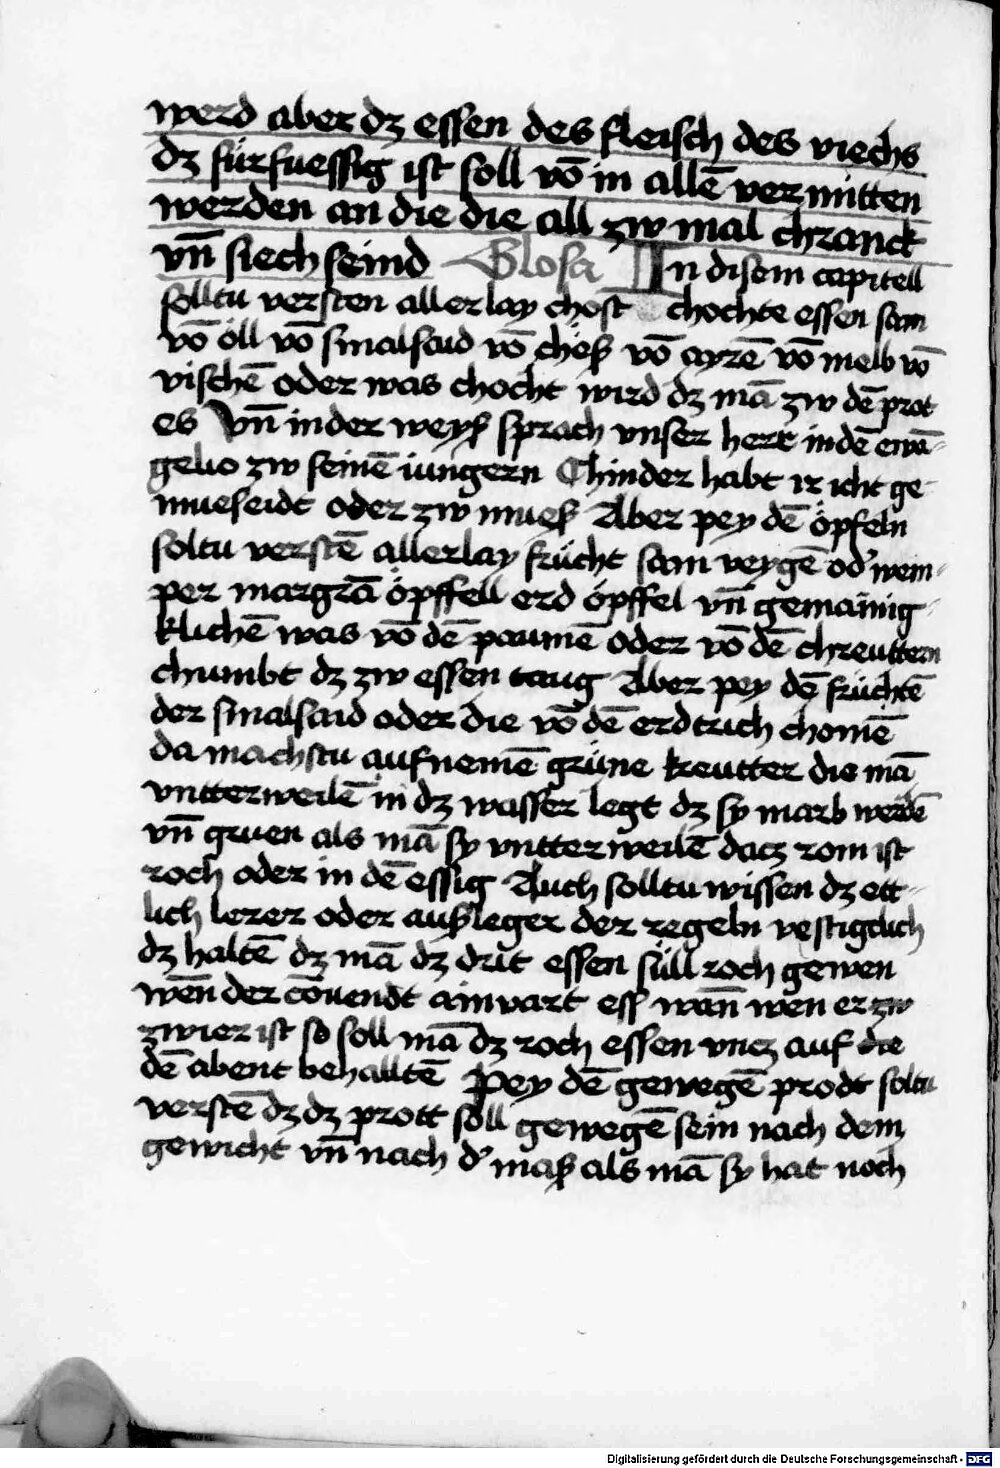 werd aber dz essen des fleisch des viechs
dz fürfuessig ist soll vō in allē vermitten
werden an die die all zw mal chranck
vn̄ siech seind Glosa In disem capitell
solltu versten allerlay chost chochte essen sam
vō öll vō smalsaid vō chës vō ayrē vō melb vō
vischē oder was chocht wird dz mā zw dē prot
es Vn̄ in der weyß sprach vnser herr in dē ewā-
gelio zw seinē iungern Chinder habt ir icht ge-
mueseidt oder zw mueß Aber pey dē öpfeln
soltu verstē allerlay frücht sam veygē od' wein-
per margrā öpffell erd öpffel vn̄ gemainig-
klichē was vō dē paumē oder vō dē chreuttern
chumbt dz zw essen taug Aber pey dē früchtē
der smalsaid oder die vō dē erdtrich chomē
da machstu aufnemē grüne kreutter die mā
vntterweilē in dz wasser legt dz sy marb werdē
vn̄ gruen als mā sy vntterweilē dacz rom ist
roch oder in dē essig Auch solltu wissen dz ett-
lich lerer oder außleger der regeln vestigclich
dz haltē dz mā dz drit essen süll roch gewen
wēn der cōuendt ainvart ess wan̄ wen er zw
zwier ist so soll mā dz roch essen vncz auf die
dē abent behalltē Pey dē gewegē prodt soltu
verstē dz dz prott soll gewegē sein nach dem
gewicht vn̄ nach d' maß als mā sy hat noch
Digitalisierung gefördert durch die Deutsche Forschungsgemeinschaft - DFG